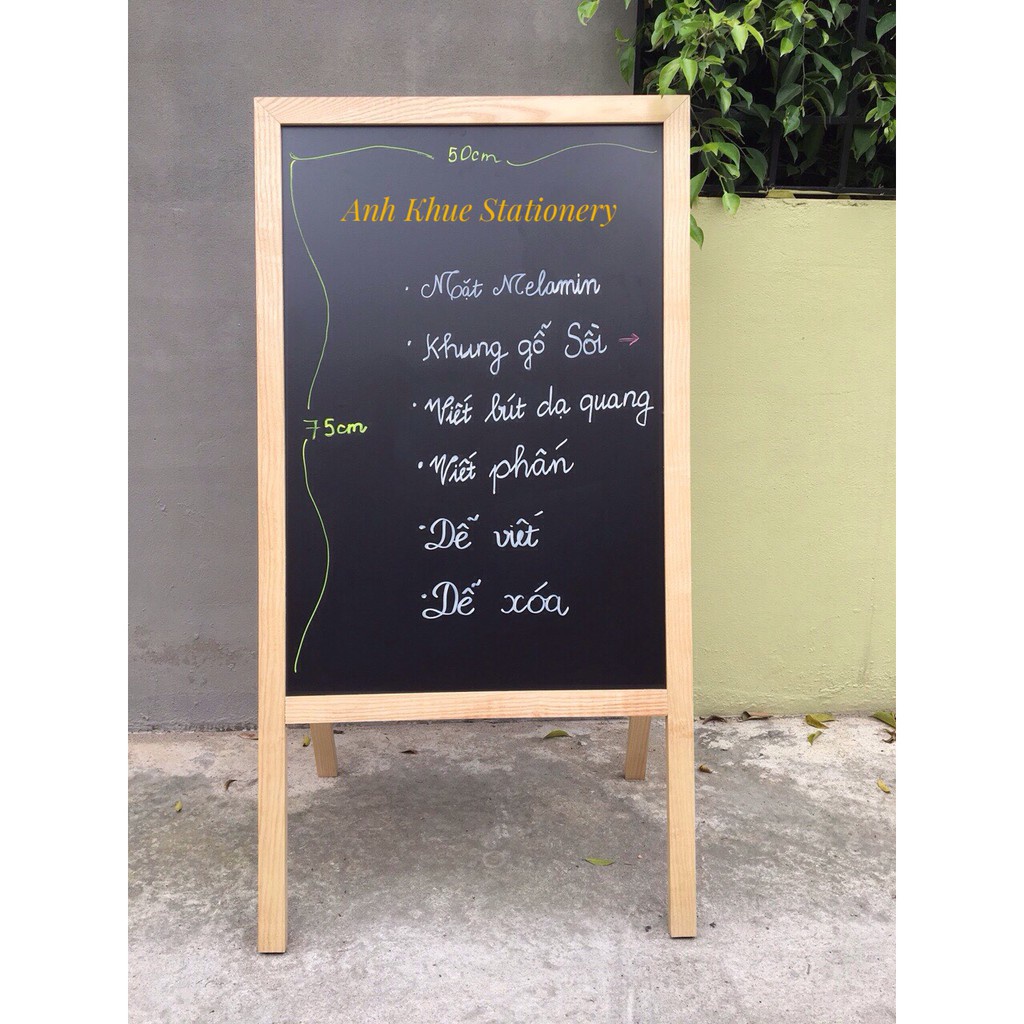 50cm
Anh Khue Stationery
· Mặt Melamin
· Khung gỗ Sồi →
· Viết bút dạ quang
75cm
· Viết phấn
· Dễ viết
· Dễ xóa